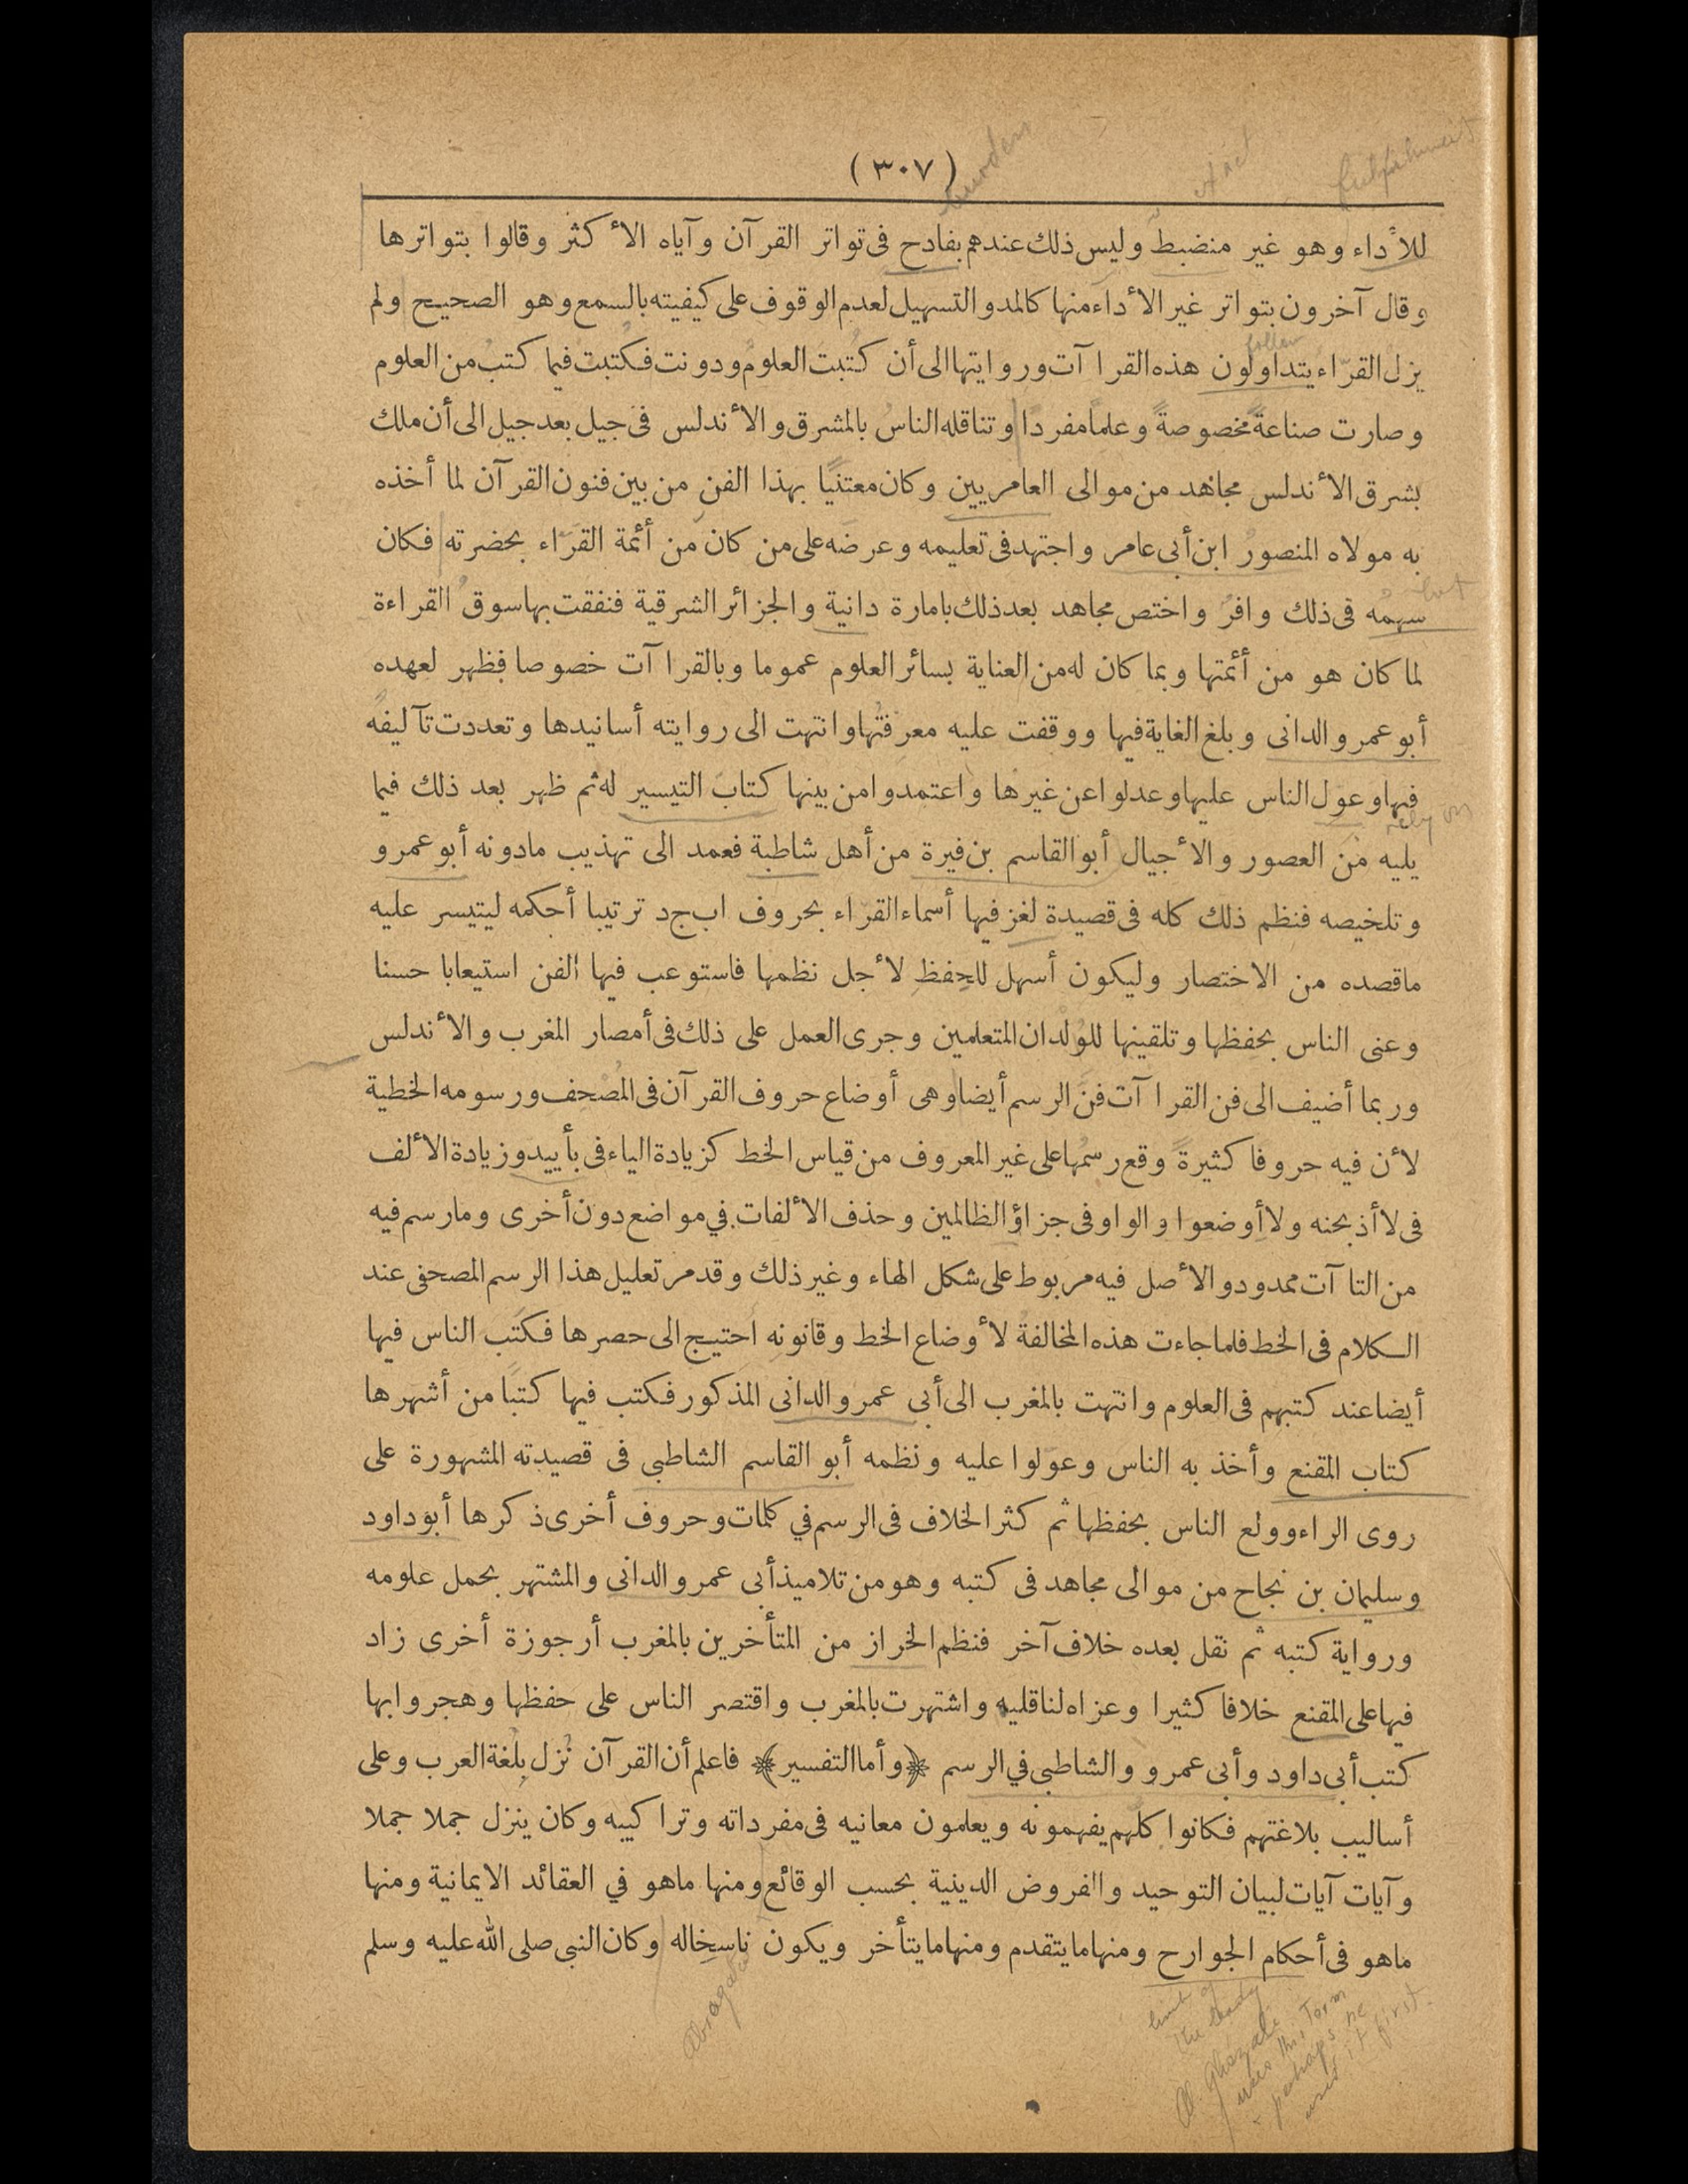 (٣٠٧)
للأداء وهو غير منضبط وليس ذلك عندهم بقادح فى تواتر القرآن وآياه الأكثر وقالوا بتواترها
وقال آخرون بتواتر غير الأداء منها كالمد والتسهيل لعدم الوقوف على كيفيته بالسمع وهو الصحيح ولم
يزل القرّاء يتداولون هذه القراآت وروايتها الى أن كُتبت العلوم ودونت فكتبت فيما كتب من العلوم
وصارت صناعةً مخصوصةً وعلمًا مفردًا وتناقله الناس بالمشرق والأندلس فى جيل بعد جيل الى أن ملك
بشرق الأندلس مجاهد من موالى العامريين وكان معتنيًا بهذا الفن من بين فنون القرآن لما أخذه
به مولاه المنصور ابن أبى عامر واجتهد فى تعليمه وعرضه على من كان من أئمة القرّاء بحضرته فكان
سهمه فى ذلك وافرٌ واختص مجاهد بعد ذلك بامارة دانية والجزائر الشرقية فنفقت بها سوق القراءة
لما كان هو من أئمتها وبما كان له من العناية بسائر العلوم عموما وبالقراآت خصوصا فظهر لعهده
أبو عمرو الدانى وبلغ الغاية فيها ووقفت عليه معرفتُها وانتهت الى روايته أسانيدها وتعددت تآليفه
فيها وعول الناس عليها وعدلوا عن غيرها واعتمدوا من بينها كتاب التيسير له ثم ظهر بعد ذلك فيما
يليه من العصور والأجيال أبو القاسم بن فيرة من أهل شاطبة فعمد الى تهذيب مادونه أبو عمرو
وتلخيصه فنظم ذلك كله فى قصيدة لغز فيها أسماء القرّاء بحروف اب ج د ترتيبا أحكمه ليتيسر عليه
ماقصده من الاختصار وليكون أسهل للحِفظِ لأجل نظمها فاستوعب فيها الفن استيعابا حسنا
وعنى الناس بحفظها وتلقينها للوُلدان المتعلمين وجرى العمل على ذلك فى أمصار المغرب والأندلس
وربما أضيف الى فن القراآت فنّ الرسم أيضا وهى أوضاع حروف القرآن فى المُصْحف ورسومه الخطية
لأن فيه حروفا كثيرةً وقع رسمُها على غير المعروف من قياس الخط كزيادة الياء فى بأييد وزيادة الألف
فى لاأذبحنه ولاأوضعوا والواو فى جزاؤ الظالمين وحذف الألفات فى مواضع دون أخرى ومارسم فيه
من التاآت ممدودو الأصل فيه مربوط على شكل الهاء وغير ذلك وقدمر تعليل هذا الرسم المصحفى عند
الكلام فى الخط فلما جاءت هذه المخالفة لأوضاع الخط وقانونه احتيج الى حصرها فكتَب الناس فيها
أيضا عند كتبهم فى العلوم وانتهت بالمغرب الى أبى عمرو الدانى المذكور فكتب فيها كتبًا من أشهرها
كتاب المقنع وأخذ به الناس وعوّلوا عليه ونظمه أبو القاسم الشاطبى فى قصيدته المشهورة على
روى الراء وولع الناس بحفظها ثم كثر الخلاف فى الرسم فى كلمات وحروف أخرى ذكرها أبو داود
وسليمان بن نجاح من موالى مجاهد فى كتبه وهو من تلاميذ أبى عمرو الدانى والمشتهر بحمل علومه
ورواية كتبه ثم نقل بعده خلاف آخر فنظم الخراز من المتأخرين بالمغرب أرجوزة أخرى زاد
فيها على المقنع خلافا كثيرا وعزاه لناقليه واشتهرت بالمغرب واقتصر الناس على حفظها وهجروابها
كتب أبى داود وأبى عمرو والشاطبى فى الرسم ﴿وأما التفسير﴾ فاعلم أن القرآن نُزل بِلُغة العرب وعلى
أساليب بلاغتهم فكانوا كلهم يفهمونه ويعلمون معانيه فى مفرداته وتراكيبه وكان ينزل جملا جملا
وآيات آيات لبيان التوحيد والفروض الدينية بحسب الوقائع ومنها ماهو في العقائد الايمانية ومنها
ماهو فى أحكام الجوارح ومنها مايتقدم ومنها مايتأخر ويكون ناسِخاله وكان النبى صلى الله عليه وسلم
follow
rely on
limb of
the body
Al Ghazali
uses this Term
& perhaps he
used it first.